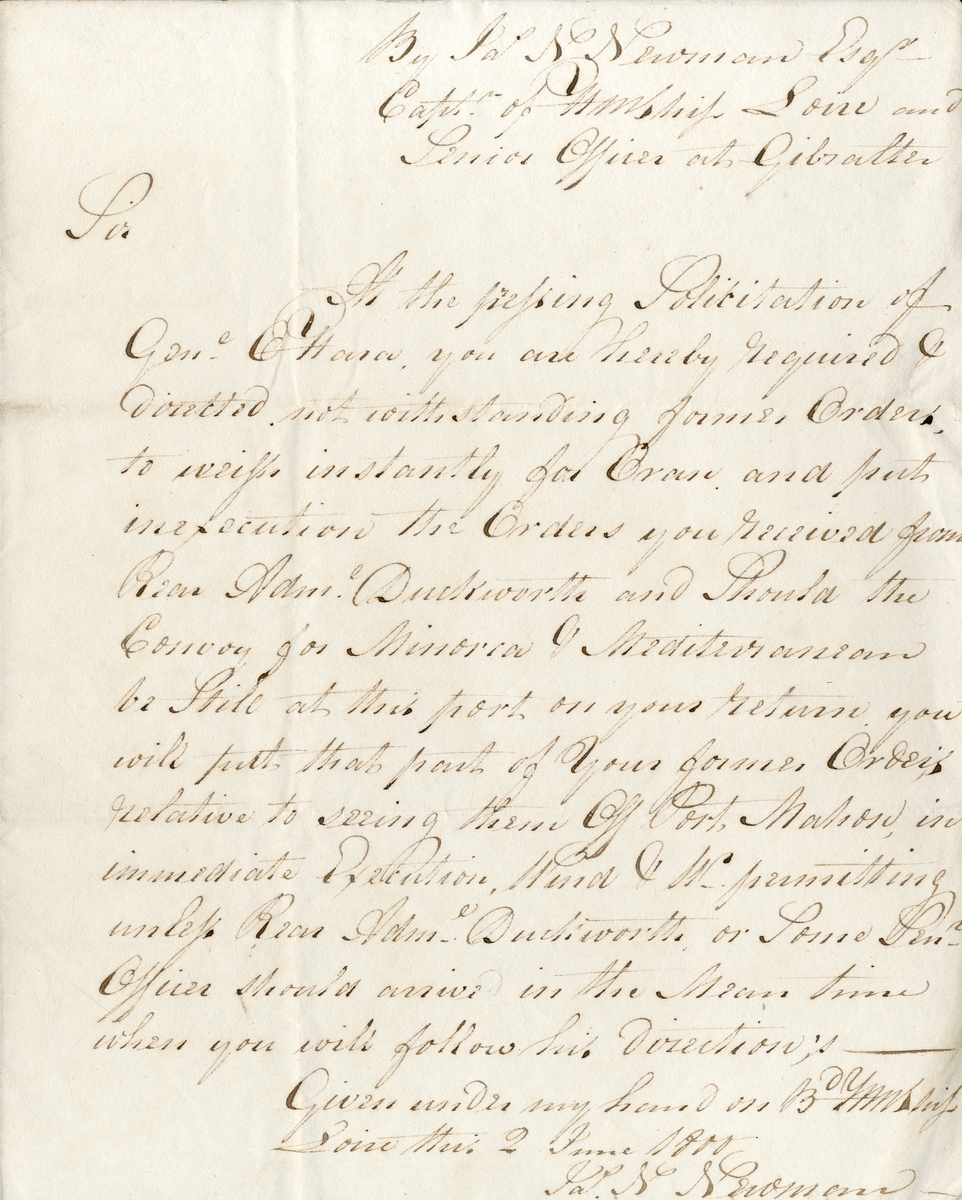 By Jas N Newman Esqr
Captn of HMShip Loire and
Senior Officer at Gibralter
Sir
At the pressing Solicitation of
Genl O'Hara you are hereby required &
directed not withstanding former Orders,
to weigh instantly for Oran and put
in execution the Orders you received from
Rear Adml Duckworth and Should the
Convoy for Minorca & Mediterranean
be Still at this port on your return you
will put that part of Your former Orders
relative to seeing them Off Port Mahon, in
immediate Execution, Wind & Wr permitting
unless Rear Adml Duckworth, or Some Senr
Officer should arrive in the Mean time
when you will follow his direction's
Given under my hand on Bd HMShip
Loire this 2 June 1800
Jas N Newman